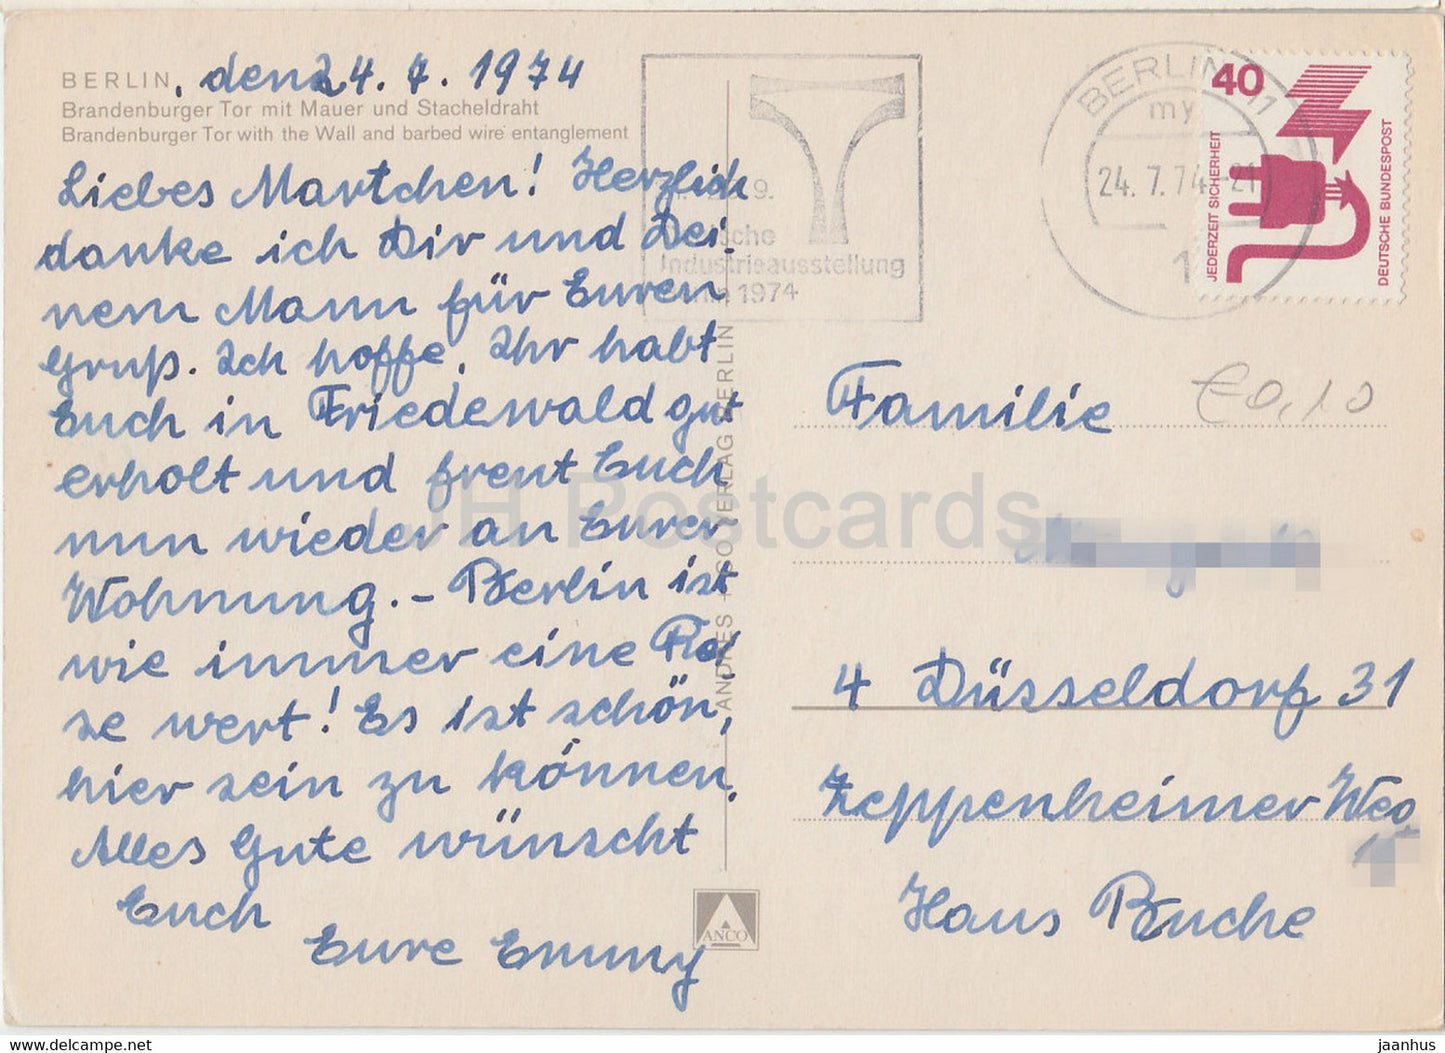 BERLIN, den 24.7.1974
Brandenburger Tor mit Mauer und Stacheldraht
Brandenburger Tor with the Wall and barbed wire entanglement
Liebes Martchen! Herzlich
danke ich Dir und Dei-
nem Mann für Euren
Gruß. Ich hoffe, Ihr habt
Euch in Friedewald gut
erholt und freut Euch
nun wieder an Eurer
Wohnung. - Berlin ist
wie immer eine Rei
se wert! Es ist schön,
hier sein zu können.
Alles Gute wünscht
Euch
Eure Emmy
9.
Industrieausstellung
1974
ANDRES + CO VERLAG BERLIN
ANCO
BERLIN 11
my
24.7.74-21
1
40
JEDERZEIT SICHERHEIT
DEUTSCHE BUNDESPOST
€0,10
Familie
4 Düsseldorf 31
Zeppenheimer Weg
Haus Buche
JH Postcards
www.delcampe.net
jaanhus